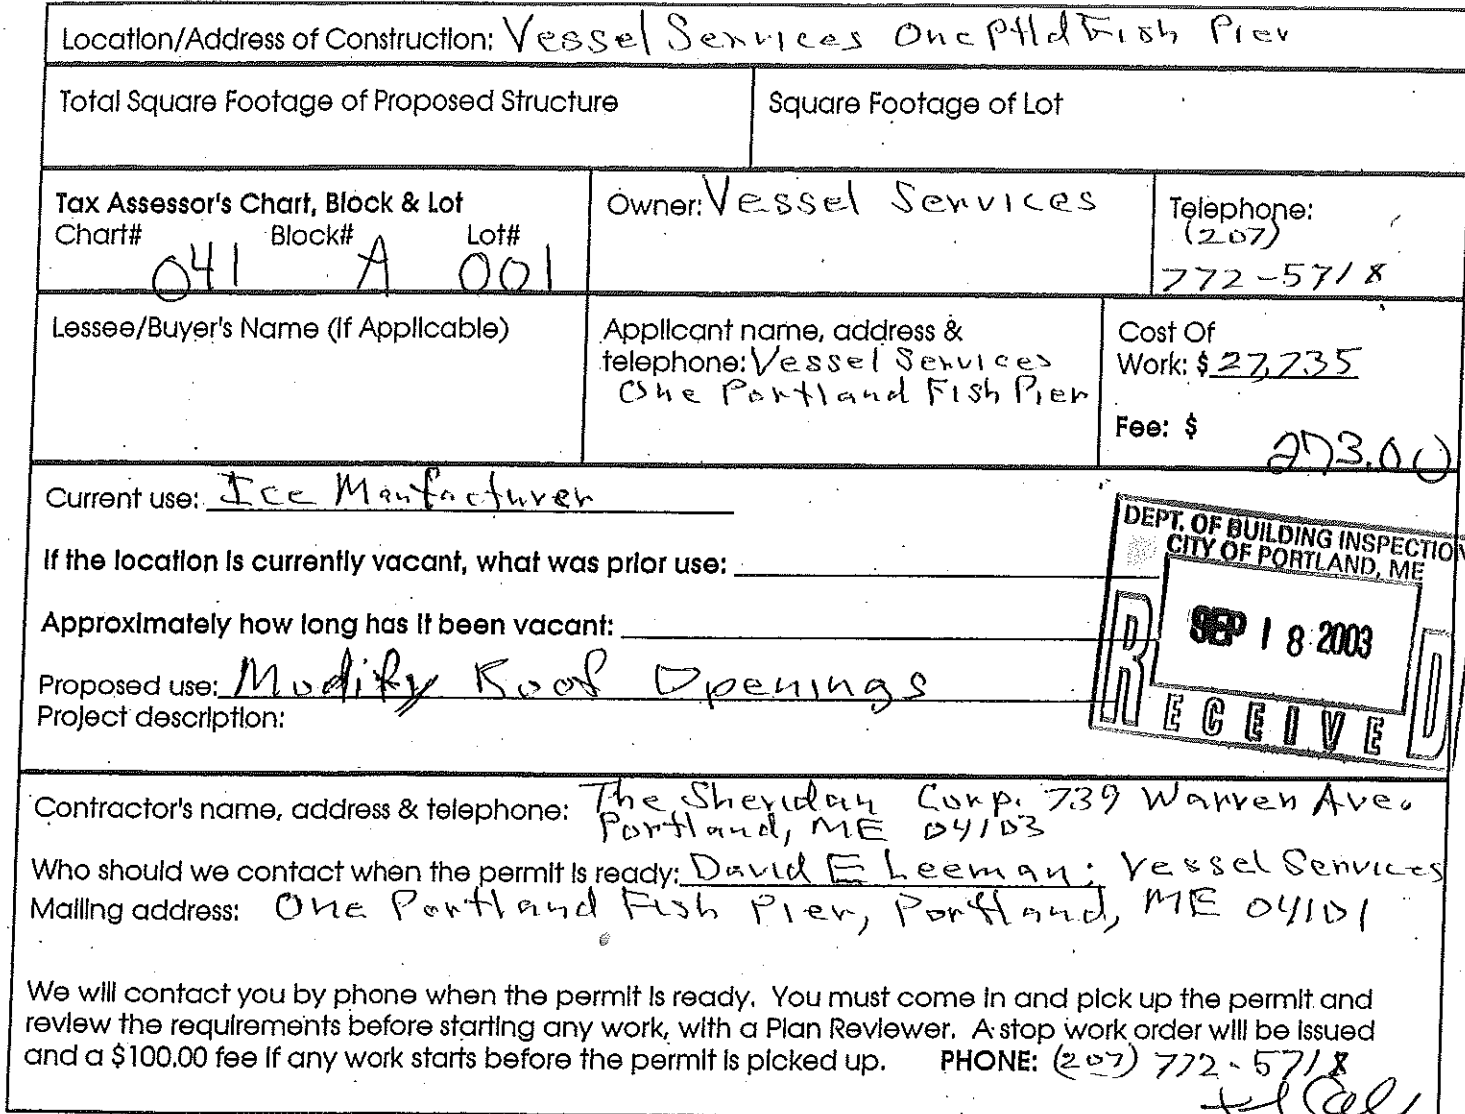 Location/Address of Construction: Vessel Services One Ptld Fish Pier
Total Square Footage of Proposed Structure
Square Footage of Lot
Tax Assessor's Chart, Block & Lot
Chart# Block# Lot#
041 A 001
Owner: Vessel Services
Telephone:
(207)
772-5718
Lessee/Buyer's Name (If Applicable)
Applicant name, address &
telephone: Vessel Services
One Portland Fish Pier
Cost Of
Work: $ 27,735
Fee: $ 273.00
Current use: Ice Manfacturer
If the location is currently vacant, what was prior use:
Approximately how long has it been vacant:
Proposed use: Modify Roof Openings
Project description:
DEPT. OF BUILDING INSPECTION
CITY OF PORTLAND, ME
SEP 18 2003
RECEIVED
Contractor's name, address & telephone: The Sheridan Corp. 739 Warren Ave.
Portland, ME 04103
Who should we contact when the permit is ready: David E Leeman; Vessel Services
Mailing address: One Portland Fish Pier, Portland, ME 04101
We will contact you by phone when the permit is ready. You must come in and pick up the permit and
review the requirements before starting any work, with a Plan Reviewer. A stop work order will be issued
and a $100.00 fee if any work starts before the permit is picked up. PHONE: (207) 772-5718